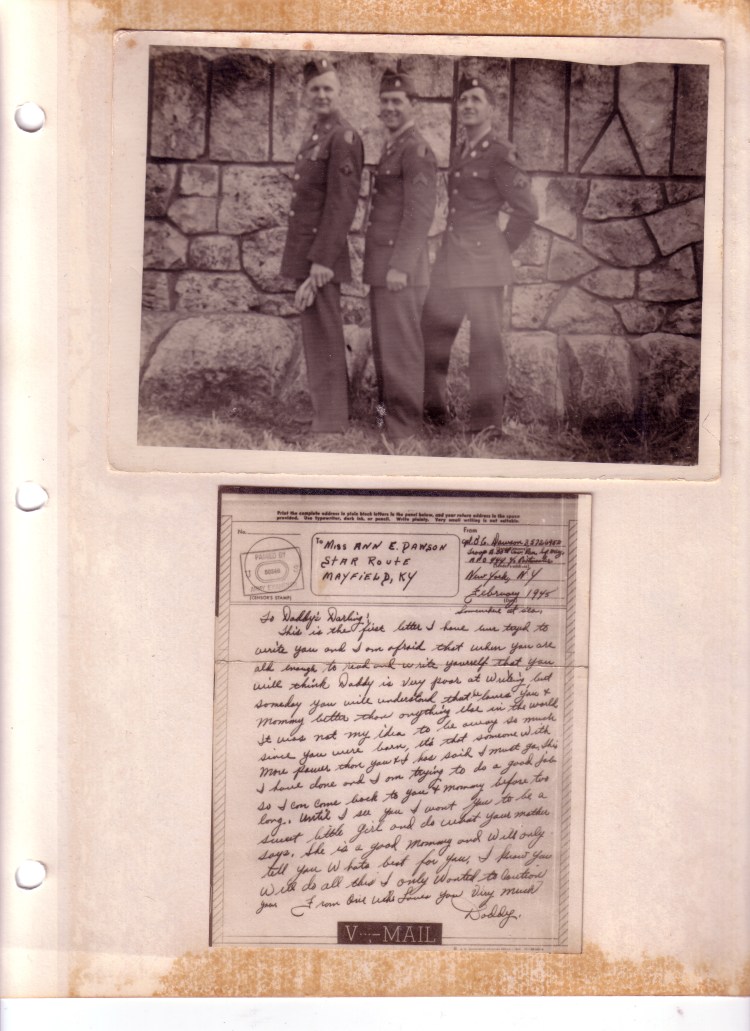 Print the complete address in plain block letters in the panel below, and your return address in the space
provided. Use typewriter, dark ink, or pencil. Write plainly. Very small writing is not suitable.
No.
To
MISS ANN E. DAWSON
STAR ROUTE
MAYFIELD, KY
From
Cpl. Dawson
New York, N.Y.
February 1945
Somewhere at sea
(CENSOR'S STAMP)
To Daddy's Darling!
This is the first letter I have ever tryed to
write you and I am afraid that when you are
old enough to read and write yourself that you
will think Daddy is very poor at writing but
someday you will understand that he loves you &
Mommy better than anything else in the world
It was not my idea to be away so much
since you were born, its that someone with
more power than you & I has said I must go, this
I have done and I am trying to do a good job
so I can come back to you & mommy before too
long. Until I see you I want you to be a
sweet little girl and do what your mother
says. She is a good Mommy and will only
tell you whats best for you. I know you
will do all this I only wanted to caution
you From One Who Loves You Very Much
Daddy.
V···—MAIL